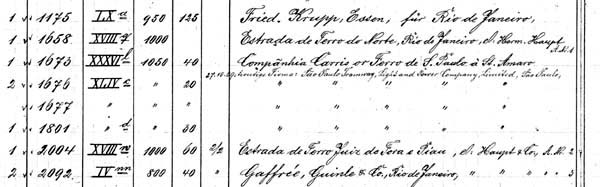 1 " 1175 LX a 950 125 Fried. Krupp, Essen, für Rio de Janeiro,
1 " 1658 XVIII q 1000 Estrada de Ferro do Norte, Rio de Janeiro, d. Herm. Haupt
1 " 1673 XXXVI b 1050 40 Companhia Carris de Ferro de S. Paulo à St. Amaro
27.12.29. heutige Firma: São Paulo Tramway, Light and Power Company, Limited, São Paulo,
2 " 1676 XLIV c " 20 " " "
" 1677 " " " " " " "
1 " 1801 " d " 30 " " "
1 " 2004 XVIII 1000 60 2/2 Estrada de Ferro Juiz de Fora e Piau, d. Haupt & Co, R. N. 2
2 " 2092 IV nn 800 40 " Gaffrée, Guinle & Co, Rio de Janeiro, " " " " 3